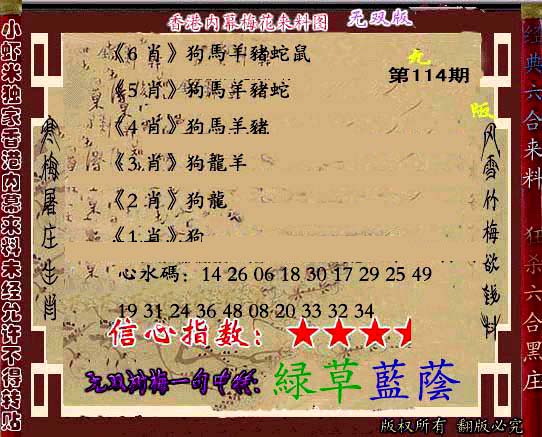 香港内幕梅花来料图 无双版
小虾米独家香港内幕来料未经允许不得转贴
寒梅屠庄生肖
《6 肖》狗馬羊豬蛇鼠
第114期
《5 肖》狗馬羊豬蛇
《4 肖》狗馬羊豬
《3 肖》狗龍羊
《2 肖》狗龍
《1 肖》狗
心水碼：14 26 06 18 30 17 29 25 49
19 31 24 36 48 08 20 33 32 34
信心指数：★★★
无双浏梅一句中特：綠草藍蔭
风雪竹梅欲钱料
经典六合来料
狂杀六合黑庄
版
版权所有 翻版必究